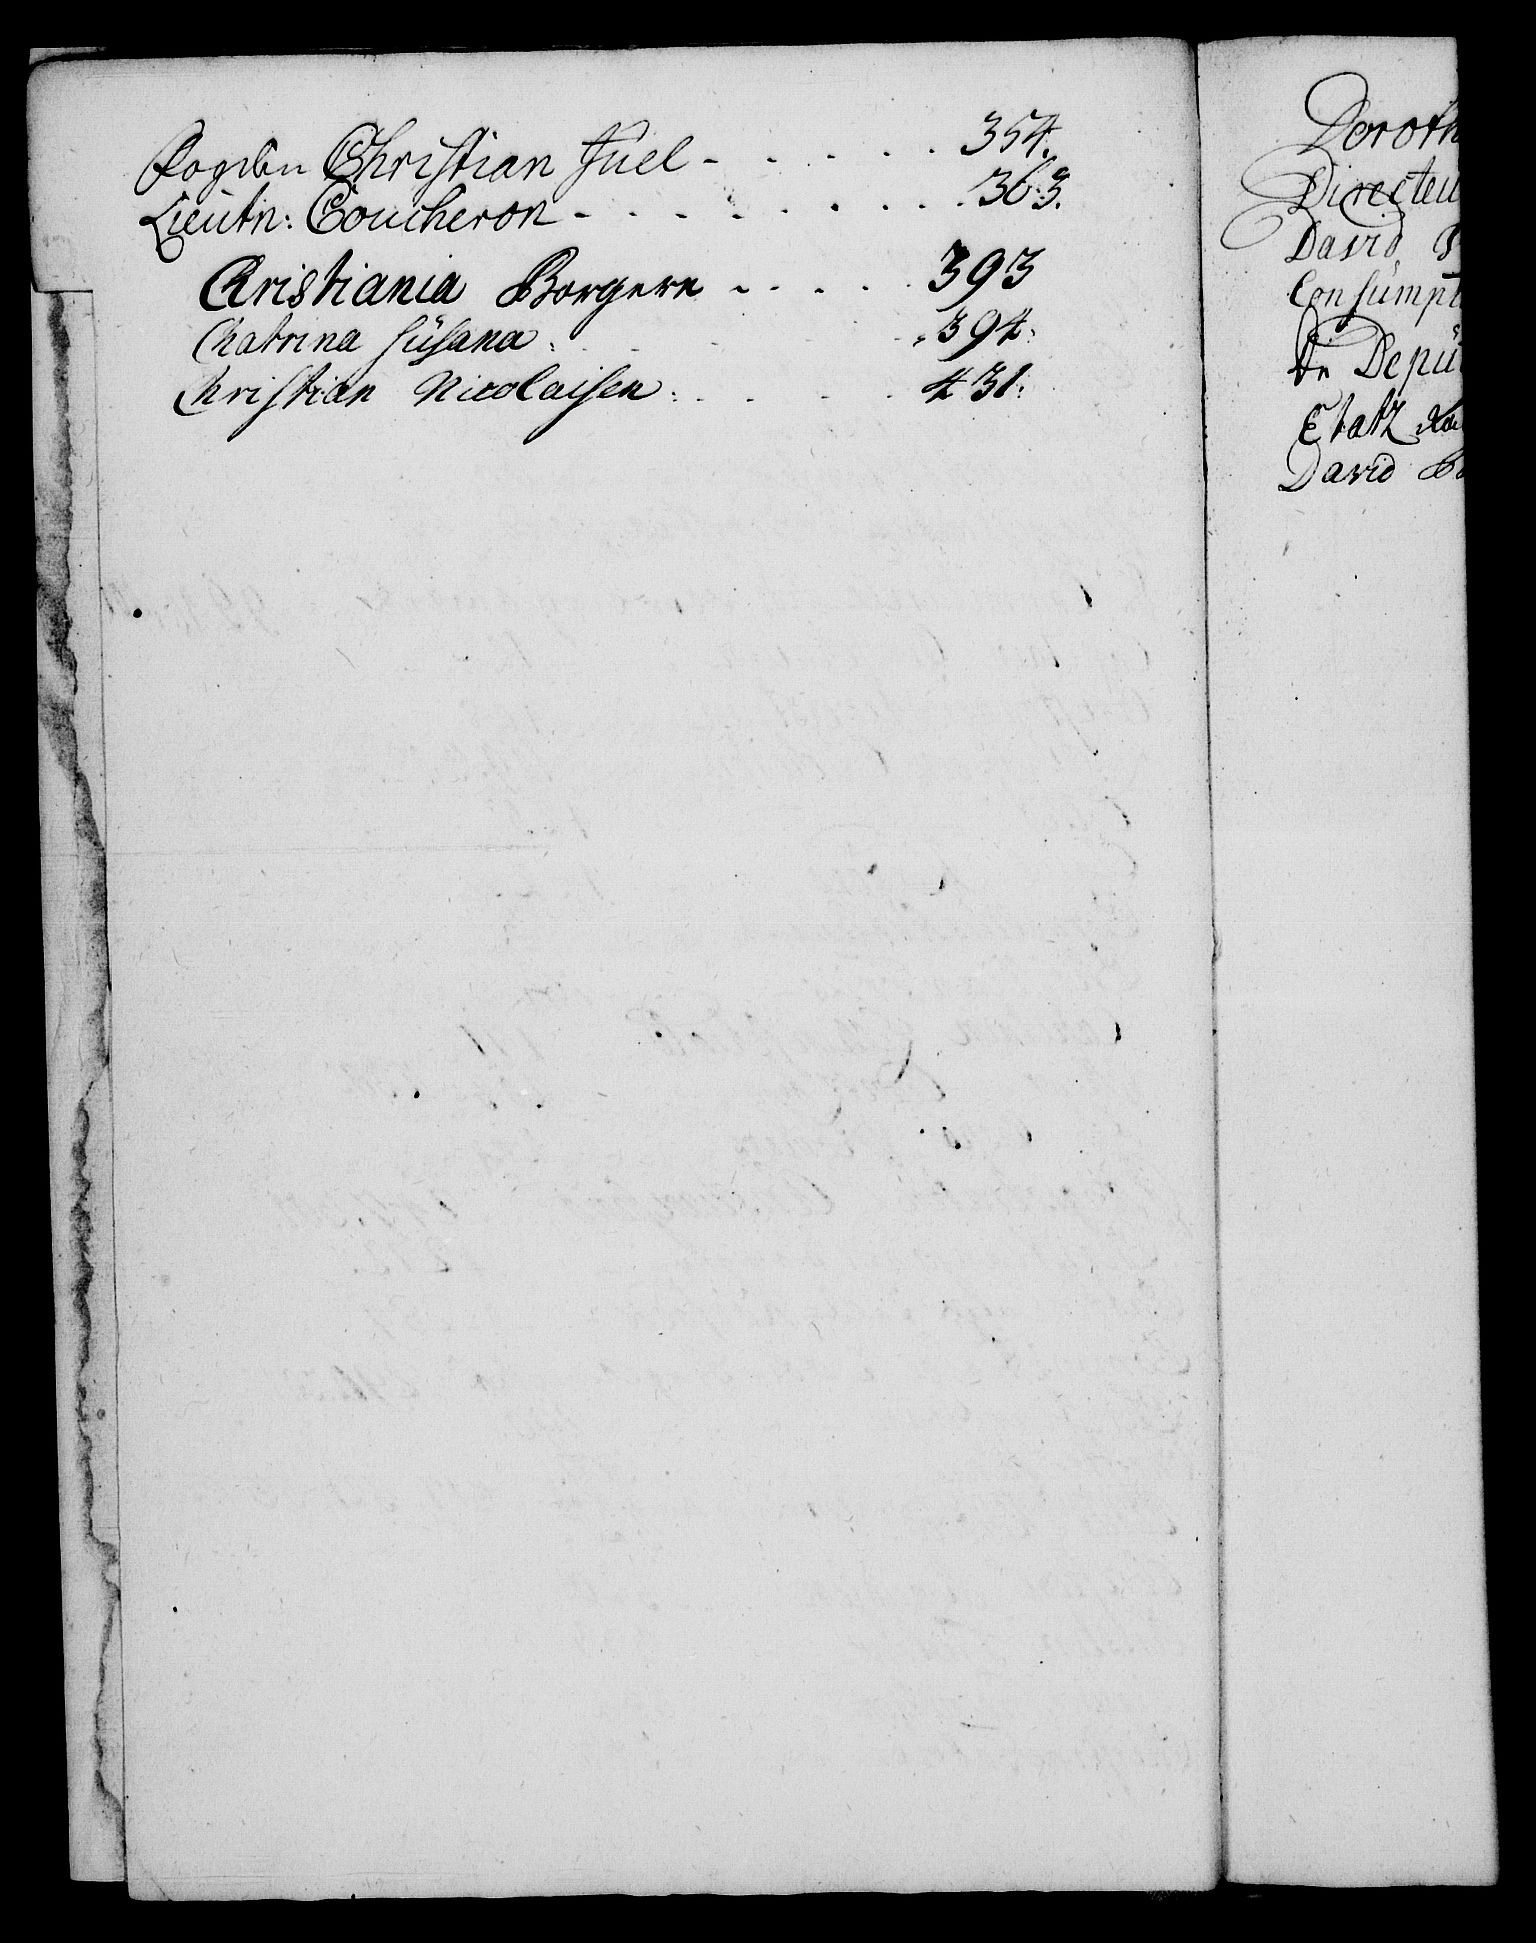 Fogden Christian Juel - . . . . . 354.
Lieutn: Coucheron - . . . . . . . . 363.
Christiania Borgere . . . . . 393
Chatrina Susana . . . . . 394.
Christian Nicolaisen . . . . . 431.
Doroth
Directeu
David
Consumpt
De Depü
Etatz
David